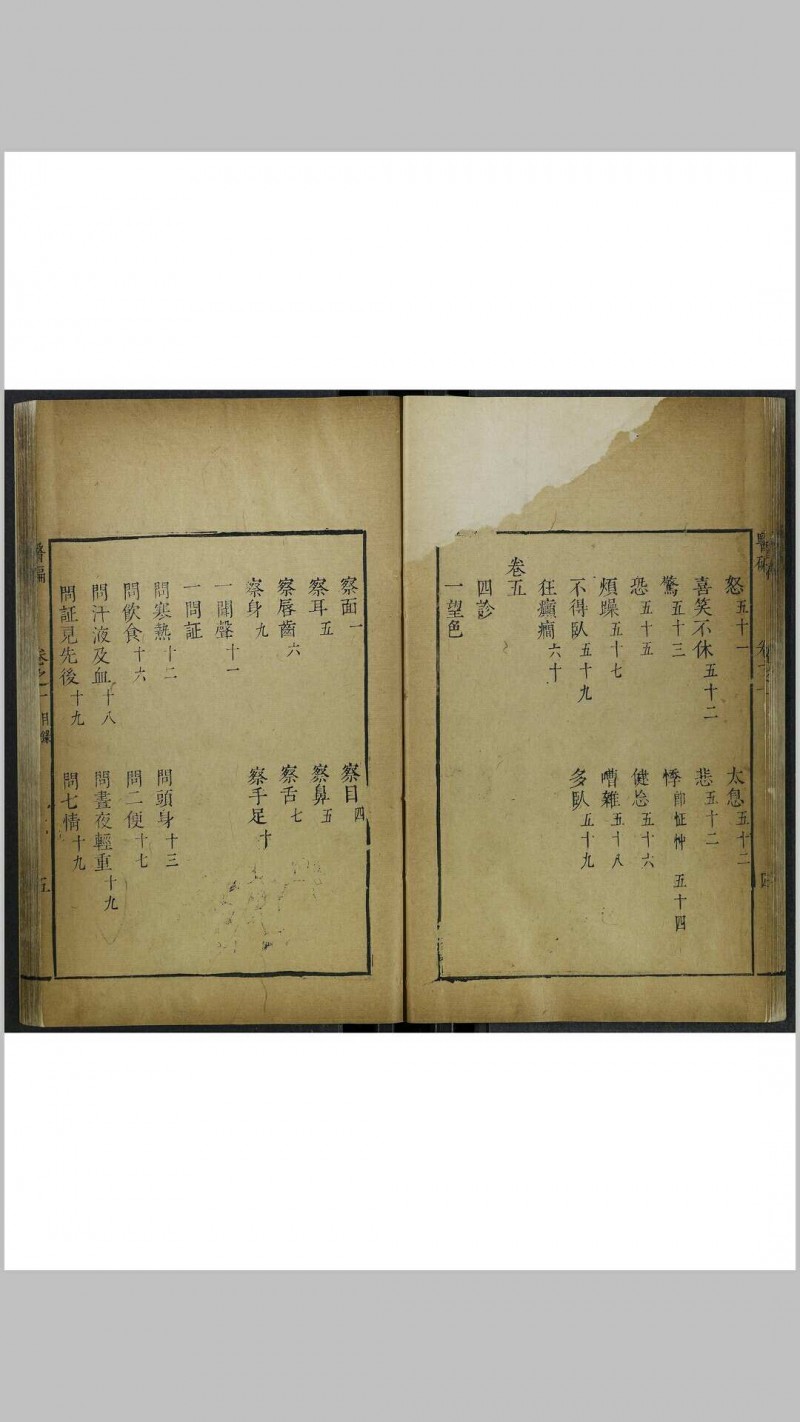 怒五十一　太息五十二
喜笑不休五十二　悲五十二
驚五十三　悸即怔忡　五十四
恐五十五　健忘五十六
煩躁五十七　嘈雜五十八
不得臥五十九　多臥五十九
狂癲癇六十
卷五
四診
一望色
察面一　察目四
察耳五　察鼻五
察唇齒六　察舌七
察身九　察手足十
一聞聲十一
一問証
問寒熱十二　問頭身十三
問飲食十六　問二便十七
問汗液及血十八　問晝夜輕重十九
問証見先後十九　問七情十九
卷之一　目錄　五